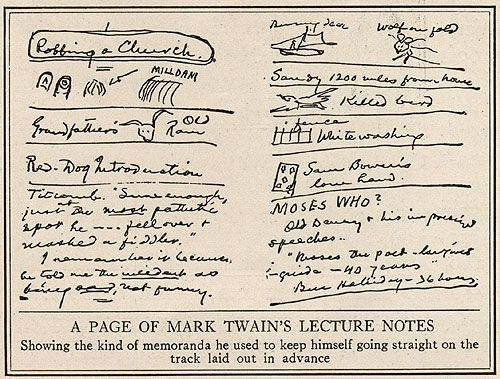 Robbing a Church.
MILLDAM
Grandfather's Old
Ram
Red-Dog Introduction
Titcomb. "Sure enough,
just at the most pathetic
spot he --- fell over &
mashed a fiddler."
I remember it because
he told me the incident as
being sad, not funny.
Wolf on fold
Sandy 1200 miles from home
Killed bird
fence
Whitewashing
Sam Bowen's
lone hand.
MOSES WHO?
Old Davey & his
speeches..
"Moses the
guide - 40 years"
Ben Holliday - 36 hours
A PAGE OF MARK TWAIN'S LECTURE NOTES
Showing the kind of memoranda he used to keep himself going straight on the
track laid out in advance